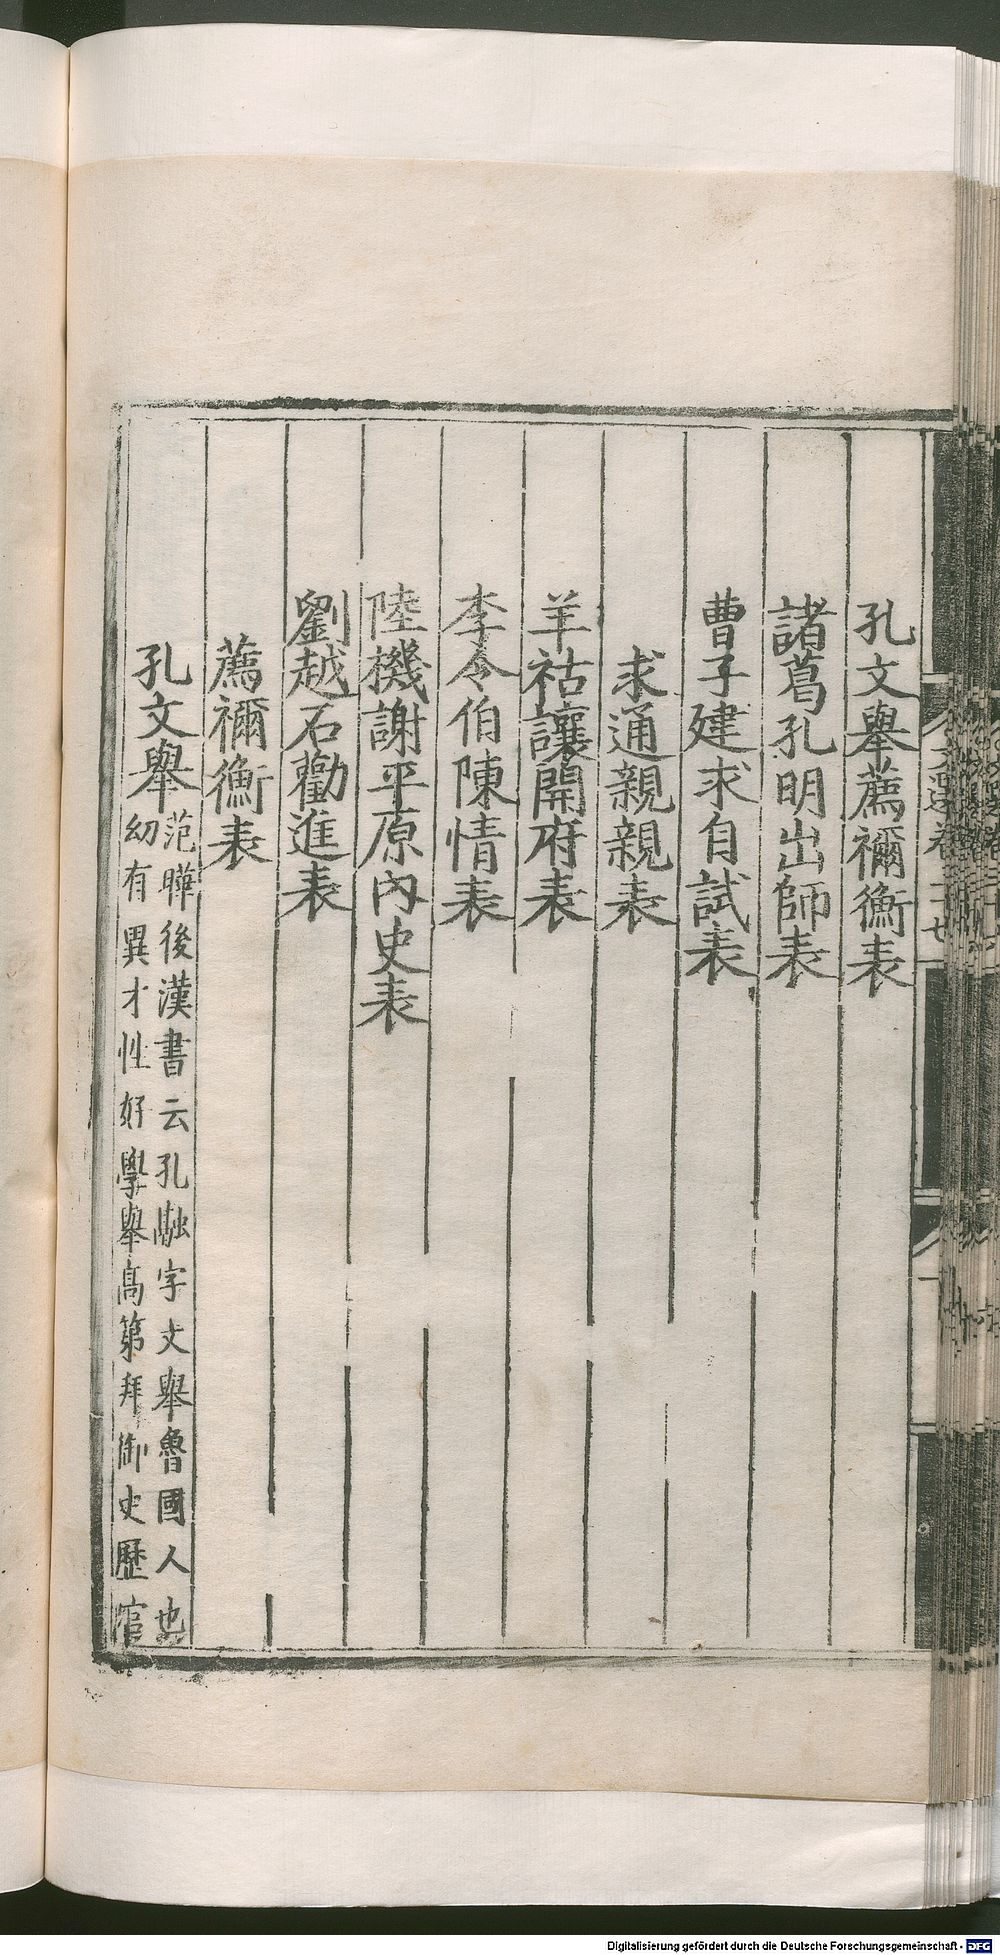 孔文舉薦禰衡表
諸葛孔明出師表
曹子建求自試表
求通親親表
羊祜讓開府表
李令伯陳情表
陸機謝平原內史表
劉越石勸進表
薦禰衡表
孔文舉
范曄後漢書云孔融字文舉魯國人也
幼有異才性好學舉高第拜御史歷官
Digitalisierung gefördert durch die Deutsche Forschungsgemeinschaft - DFG